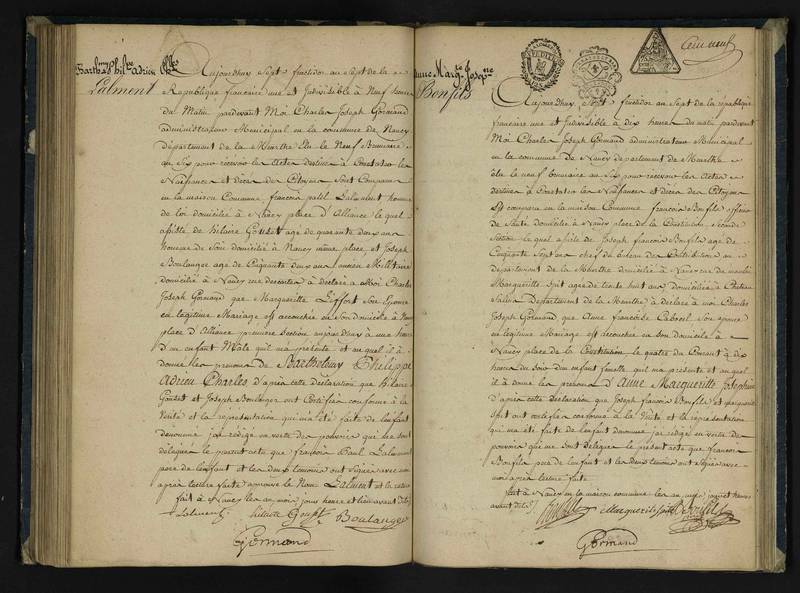 Barth. Phil. Adrien Ch.
Lalment
Aujourdhuy Sept fructidor an Sept de la
Republique française une et Indivisible à Neuf heures
du Matin pardevant Moi Charles Joseph Germand
administrateur Municipal en la commune de Nancy
département de la Meurthe Elu le Neuf Brumaire
an Six pour recevoir les Actes destinés à Constater les
Naissances et décès des Citoyens Sont Comparus
en la maison Commune françois paul Lalment homme
de loi domicilié à Nancy place d'Alliance le quel
assisté de hilaire Gouset age de quarante deux ans
domicilié à Nancy même place et Joseph
Boulanger age de Cinquante deux ans ancien Militaire
domicilié à Nancy rue à déclaré à Moi Charles
Joseph Germand que Margueritte Liffort Son Epouse
en legitime Mariage est accouchée en Son domicile à Nancy
place d'Alliance premiere Section aujourd'huy à une heure
d'un enfant Male qu'il m'a présenté et au quel il à
donné les prenoms de Bartholemy Phelippe
Adrien Charles d'après cette déclaration que hilaire
Gouset et Joseph Boulanger ont Certifiée conforme à la
Verité et la représentation qui m'a été faite de l'enfant
denommé jai rédigé en vertu des pouvoirs qui me sont
délégués le présent acte que françois Paul Lalment
pere de l'enfant et les deux temoins ont Signé avec moi
après lecture faite approuvé le Nom Lalment et la rature
fait à Nancy les an, mois, jour heure et lieu avant dits
Lalment hilaire Gouset Boulanger
Germand
Anne Marg.te Joseph.ne
Bonfils
Cent neuf
Aujourdhuy Sept fructidor an Sept de la république
francaise une et Indivisible à dix heures du matin pardevant
Moi Charles Joseph Germand administrateur Municipal
en la commune de Nancy département de Meurthe
élu le neuf brumaire an Six pour recevoir les Actes
destinés à Constater les Naissances et décès des Citoyens
Est comparu en la maison Commune françois Bonfils officier
de Santé domicilié à Nancy place de la Constitution Seconde
Section le quel assisté de Joseph francois Bonfils age de
Cinquante Sept ans chef du bureau des Contributions au
département de la Meurthe domicilié à Nancy rue
Margueritte Spit agée de trente huit ans, domiciliée à Chateau
Salins Département de la Meurthe à déclaré à moi Charles
Joseph Germand que Anne francoise Son epouse
en legitime Mariage est accouchée en son domicile à
Nancy place de la Constitution le quatre du Courant à dix
heures du Soir d'un enfant femelle qu'il ma présenté et au quel
il à donné les prenoms d'Anne Marguerite Josephine
d'après cette declaration que Joseph francois Bonfils et marguerite
Spit ont certifiée conforme à la Verité et la réprésentation
qui m'a été faite de l'enfant denommé jai rédigé en vertu des
pouvoirs qui me Sont delegués le présent acte que francois
Bonfils pere de l'enfant et les deux temoins ont signé avec
moi après lecture faite
fait à Nancy en la maison commune les an, mois, jour et heure
avant dits Marguerite Spit Bonfils
Germand